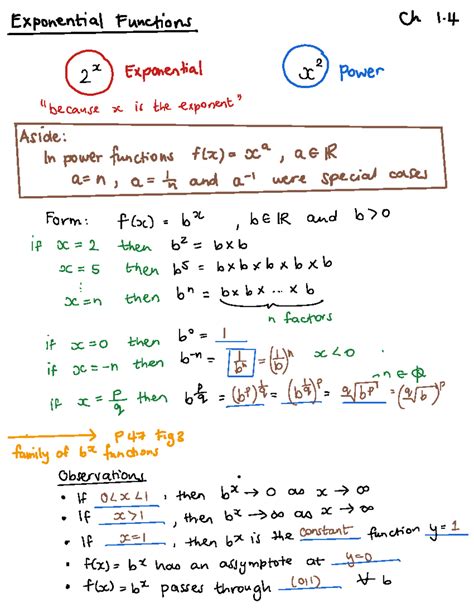 Exponential Functions Ch 1.4
2^x Exponential x^2 Power
"because x is the exponent"
Aside:
In power functions f(x) = x^a , a ∈ ℝ
a = n , a = 1/n and a^-1 were special cases
Form: f(x) = b^x , b ∈ ℝ and b > 0
if x = 2 then b^2 = b x b
x = 5 then b^5 = b x b x b x b x b
⋮
x = n then b^n = b x b x ... x b
n factors
if x = 0 then b^0 = 1
if x = -n then b^-n = 1/b^n = (1/b)^n x < 0
if x = p/q then b^(p/q) = (b^p)^(1/q) = (b^(1/q))^p = q√b^p = (q√b)^p
→ P47 Fig 3
family of b^x functions
Observations
• If 0<x<1 , then b^x → 0 as x → ∞
• If x>1 , then b^x → ∞ as x → ∞
• If x=1 , then b^x is the constant function y = 1
• f(x) = b^x has an assymptote at y=0
• f(x) = b^x passes through (0,1) ∀ b